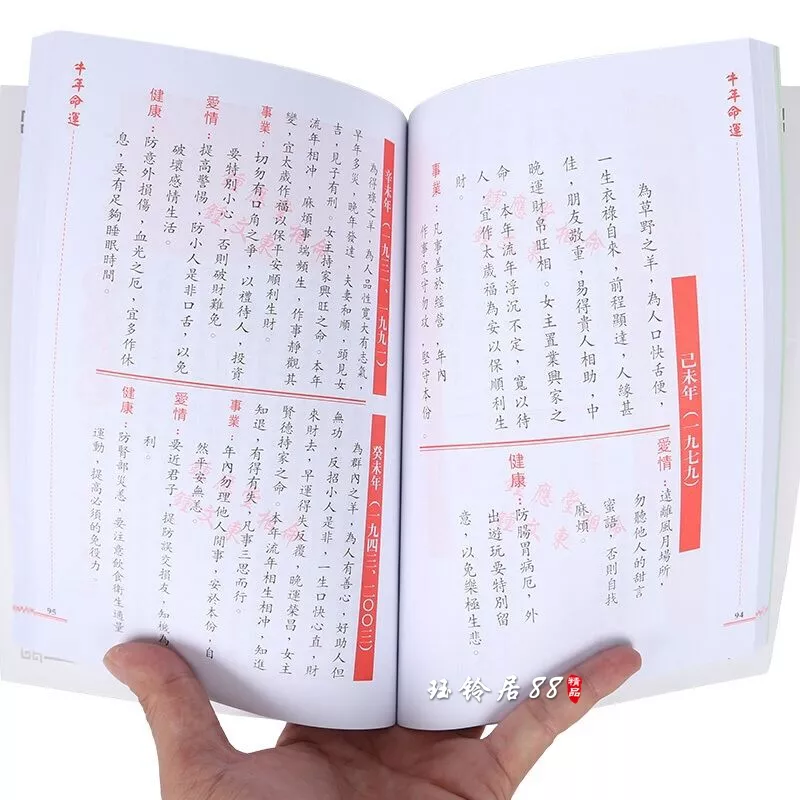 牛年命運
己未年(一九七九)
為草野之羊，為人口快舌便，
一生衣祿自來，前程顯達，人緣甚
佳，朋友敬重，易得貴人相助，中
晚運財帛旺相。女主置業興家之
命。本年流年浮沉不定，寬以待
人，宜作太歲福為安以保順利生
財。
事業：凡事善於經營，年內
作事宜守勿攻，堅守本份。
愛情：遠離風月場所，
勿聽他人的甜言
蜜語，否則自找
麻煩。
健康：防腸胃病厄，外
出遊玩要特別留
意，以免樂極生悲。
94
辛未年(一九三一、一九九一)
為得祿之羊，為人品性寬大有志氣，
早年多災，晚年發達，夫妻和順，頭見女
吉，見子有刑。女主持家興旺之命。本年
流年相沖，麻煩事端頻生，作事靜觀其
變，宜太歲作福以保平安順利生財。
事業：切勿有口角之爭，以禮待人，投資
要特別小心，否則破財難免。
愛情：提高警惕，防小人是非口舌，以免
破壞感情生活。
健康：防意外損傷，血光之厄，宜多作休
息，要有足夠睡眠時間。
癸未年(一九四三、二〇〇三)
為群內之羊，為人有善心，好助人但
無功，反招小人是非，一生口快心直，財
來財去，早運得失反覆，晚運榮昌，女主
賢德持家之命。本年流年相生相沖，知進
知退，有得有失，凡事三思而行。
事業：年內勿理他人閒事，安於本份，自
然平安無恙。
愛情：要近君子，提防誤交損友，知機為
利。
健康：防腎部災恙，要注意飲食衛生適量
運動，提高必須的免疫力。
牛年命運
95
珏铃居88
精品